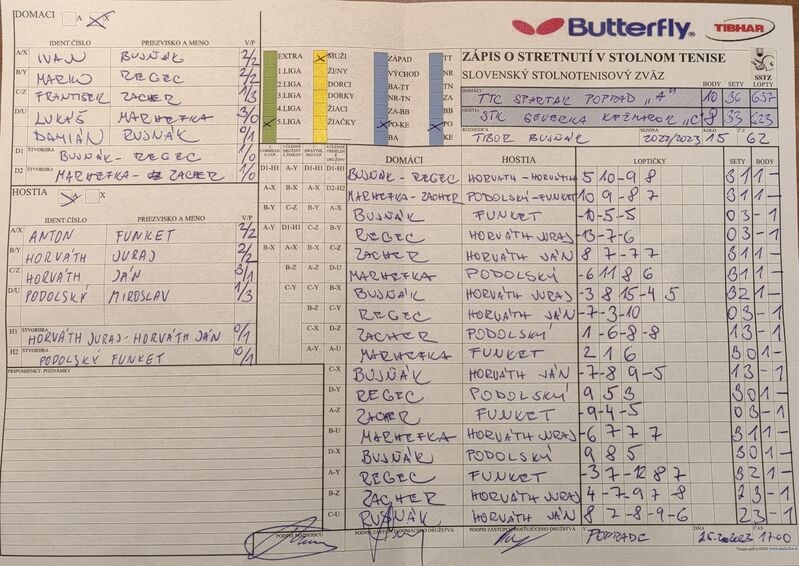 DOMÁCI A X
Butterfly
TIBHAR
IDENT.ČÍSLO PRIEZVISKO A MENO V/P
A/X IVAN BUJŇÁK 2/2
B/Y MARKO REGEC 2/2
C/Z FRANTIŠEK ZACHER 1/3
D/U LUKÁŠ MARHEFKA 3/0
DAMIÁN RUSŇÁK 0/1
D1 ŠTVORHRA BUJŇÁK - REGEC 1/0
D2 ŠTVORHRA MARHEFKA - ZACHER 1/0
HOSTIA A X
IDENT.ČÍSLO PRIEZVISKO A MENO V/P
A/X ANTON FUNKET 2/2
B/Y HORVÁTH JURAJ 2/2
C/Z HORVÁTH JÁN 3/1
D/U PODOLSKÝ MIROSLAV 1/3
H1 ŠTVORHRA HORVÁTH JURAJ - HORVÁTH JÁN 0/1
H2 ŠTVORHRA PODOLSKÝ FUNKET 0/1
PRIPOMIENKY, POZNÁMKY
EXTRA MUŽI ZÁPAD TT
1.LIGA ŽENY VÝCHOD NR
2.LIGA DORCI BA-TT TN
3.LIGA DORKY NR-TN ZA
4.LIGA ŽIACI ZA-BB BB
5.LIGA ŽIAČKY PO-KE PO
BA KE
ZÁPIS O STRETNUTÍ V STOLNOM TENISE
SLOVENSKÝ STOLNOTENISOVÝ ZVÄZ
SSTZ
BODY SETY LOPTY
DOMÁCI TTC SPARTAK POPRAD "A" 10 36 657
HOSTIA STK SEVERKA KEŽMAROK "C" 8 33 623
ROZHODCA TIBOR BUJŇÁK SEZÓNA 2022/2023 KOLO 15 Č. 62
DOMÁCI HOSTIA LOPTIČKY SETY BODY
D1-H1 BUJŇÁK - REGEC HORVÁTH - HORVÁTH 5 10 -9 8 3 1 1 -
D2-H2 MARHEFKA - ZACHER PODOLSKÝ - FUNKET 10 9 -8 7 3 1 1 -
BUJŇÁK FUNKET -10 -5 -5 0 3 - 1
REGEC HORVÁTH JURAJ -13 -7 -6 0 3 - 1
ZACHER HORVÁTH JÁN 8 7 -7 7 3 1 1 -
MARHEFKA PODOLSKÝ -6 11 8 6 3 1 1 -
BUJŇÁK HORVÁTH JURAJ -3 8 15 -4 5 3 2 1 -
REGEC HORVÁTH JÁN -7 -3 -10 0 3 - 1
ZACHER PODOLSKÝ 1 -6 -8 -8 1 3 - 1
MARHEFKA FUNKET 2 1 6 3 0 1 -
C-X BUJŇÁK HORVÁTH JÁN -7 -8 9 -5 1 3 - 1
D-Y REGEC PODOLSKÝ 9 5 3 3 0 1 -
A-Z ZACHER FUNKET -9 -4 -5 0 3 - 1
B-U MARHEFKA HORVÁTH JURAJ -6 7 7 7 3 1 1 -
D-X BUJŇÁK PODOLSKÝ 9 8 5 3 0 1 -
A-Y REGEC FUNKET -3 7 -12 8 7 3 2 1 -
B-Z ZACHER HORVÁTH JURAJ 4 -7 -9 7 -8 2 3 - 1
C-U RUSŇÁK HORVÁTH JÁN 8 7 -8 -9 -6 2 3 - 1
PODPIS ROZHODCU PODPIS ZÁSTUPCU DOMÁCEHO DRUŽSTVA PODPIS ZÁSTUPCU HOSŤUJÚCEHO DRUŽSTVA V POPRADE DŇA ČAS 17:00